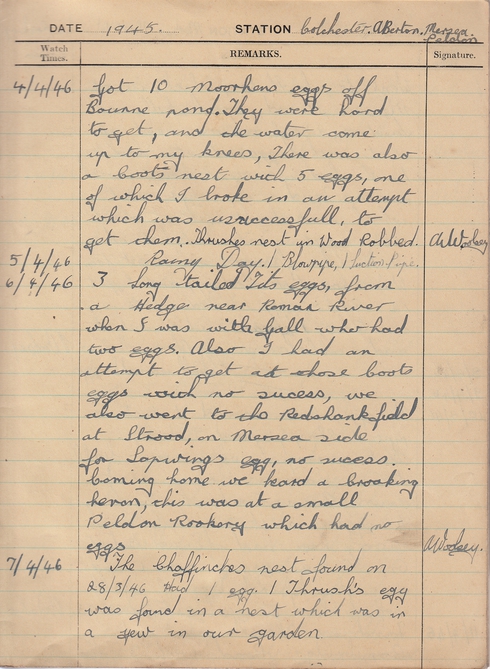 DATE 1945. STATION Colchester. ABerton. Mersea.
Peldon
Watch Times. REMARKS. Signature.
4/4/46 Got 10 Moorhens eggs off
Bourne pond. They were hard
to get, and the water came
up to my knees, There was also
a coots nest with 5 eggs, one
of which I broke in an attempt
which was usaccessfull, to
get them. Thrushes nest in Wood Robbed. A Woolsey
5/4/46 Rainy Day. 1 Blowpipe, 1 Suction Pipe.
6/4/46 3 Long tailed Tits eggs, from
a Hedge near Roman River
when I was with Gall who had
two eggs. Also I had an
attempt to get at those coots
eggs with no sucess, we
also went to the Redshank field
at Strood, on Mersea side
for Lapwings egg, no sucess.
Coming home we heard a croaking
heron, this was at a small
Peldon Rookery which had no
eggs A Woolsey.
7/4/46 The Chaffinches nest found on
28/3/46 Had 1 egg. 1 Thrush's egg
was found in a nest which was in
a yew in our garden.